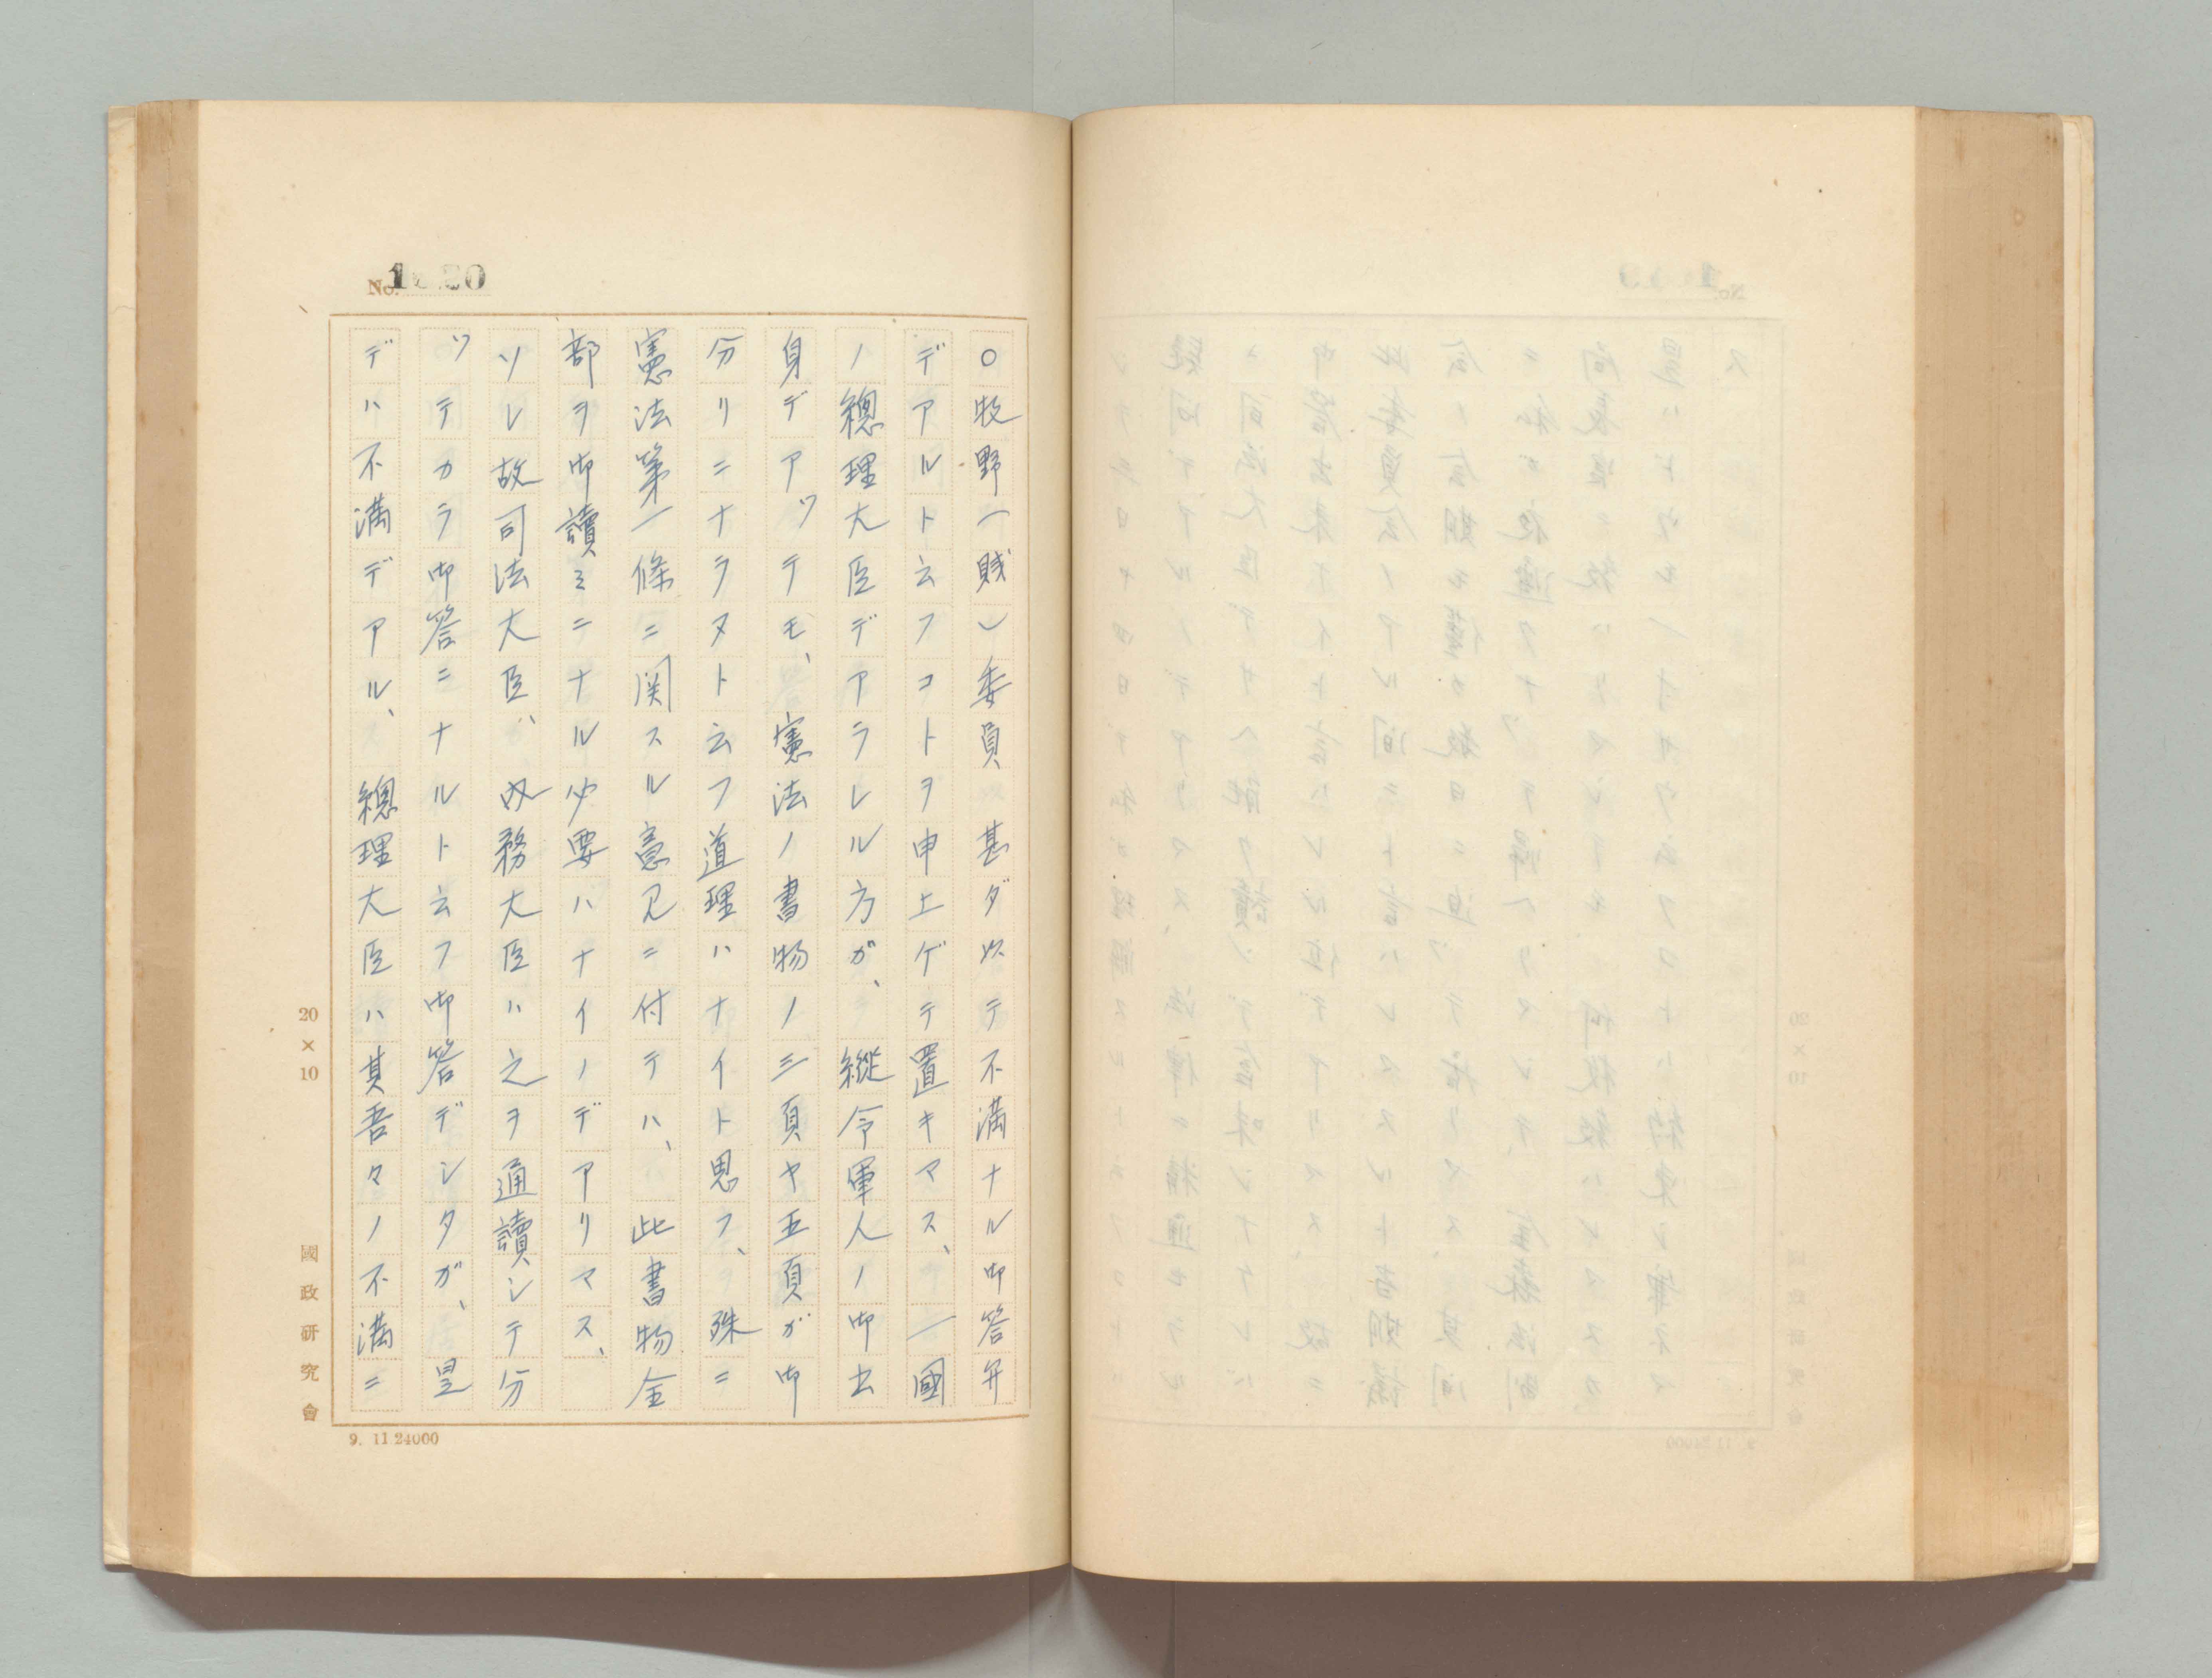 No. 1 20
○牧野(賎)委員 甚ダ以テ不満ナル御答弁
デアルト云フコトヲ申上ゲテ置キマス、一國
ノ總理大臣デアラレル方ガ、縦令軍人ノ御出
身デアツテモ、憲法ノ書物ノ三頁ヤ五頁ガ御
分リニナラヌト云フ道理ハナイト思フ、殊ニ
憲法第一條ニ関スル意見ニ付テハ、此書物全
部ヲ御讀ミニナル必要ハナイノデアリマス、
ソレ故司法大臣、内務大臣ハ之ヲ通讀シテ分
ツテカラ御答ニナルト云フ御答デシタガ、是
デハ不満デアル、總理大臣ハ其吾々ノ不満ニ
20×10
國政研究會
9. 11 24000